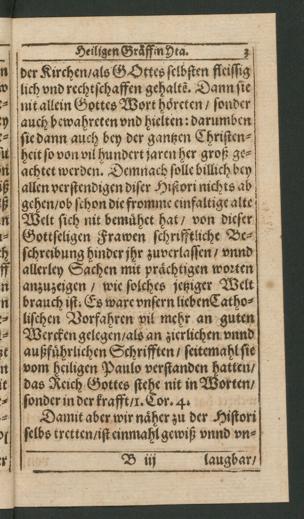 Heiligen Gräffin Yta. 3
der Kirchen/als GOttes selbsten fleissig
lich vnd rechtschaffen gehaltē. Dann sie
nit allein Gottes Wort höreten/ sonder
auch bewahreten vnd hielten: darumben
sie dann auch bey der gantzen Christen-
heit so von vil hundert jaren her groß ge-
achtet werden. Demnach solle billich bey
allen verstendigen diser Histori nichts ab
gehen/ob schon die fromme einfaltige alte
Welt sich nit bemühet hat/ von dieser
Gottseligen Frawen schrifftliche Be-
schreibung hinder jhr zuverlassen/ vnnd
allerley Sachen mit prächtigen worten
anzuzeigen/ wie solches jetziger Welt
brauch ist: Es ware vnsern lieben Catho-
lischen Vorfahren vil mehr an guten
Wercken gelegen/als an zierlichen vnnd
außführlichen Schrifften/ seitemahl sie
vom heiligen Paulo verstanden hatten/
das Reich Gottes stehe nit in Worten/
sonder in der krafft/1. Cor. 4.
Damit aber wir näher zu der Histori
selbs tretten/ist einmahl gewiß vnnd vn-
B iij laugbar/